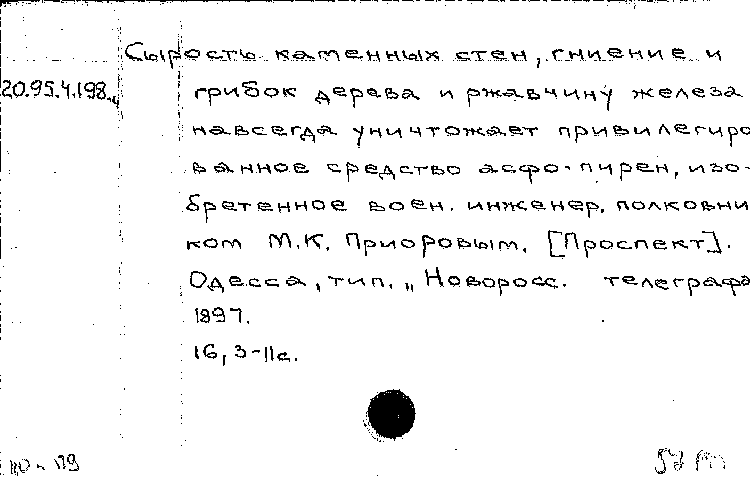 Сырость каменных стен, гниение и
20.95.4.198. грибок дерева и ржавчину железа
навсегда уничтожает привилегиро
ванное средство асфо-пирен, изо-
бретенное воен. инженер. полковни
ком М.К. Приоровым. [Проспект].
Одесса, тип. „Новоросс. телеграфа
1897.
16, 3-11с.